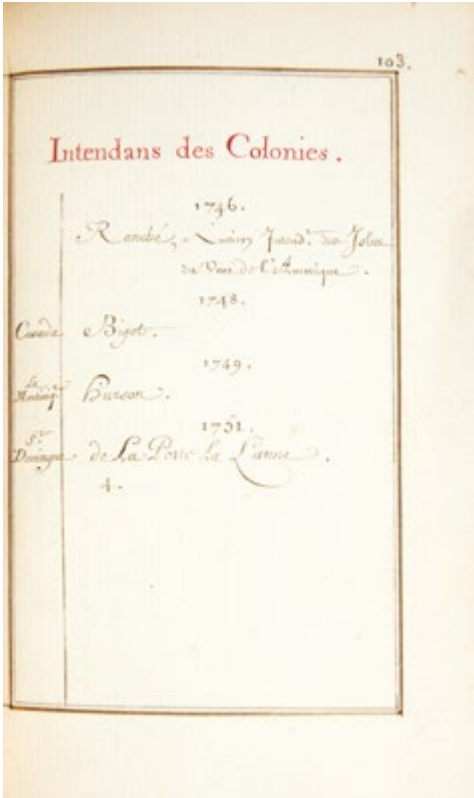 103.
Intendans des Colonies.
1746.
Ranché, ancien Intend.t des Isles
du Vent de l'Amerique.
1748.
Canada Bigot.
1749.
La Martiniq. Hurson.
1751.
St Domingue de La Porte La Lanne.
4.